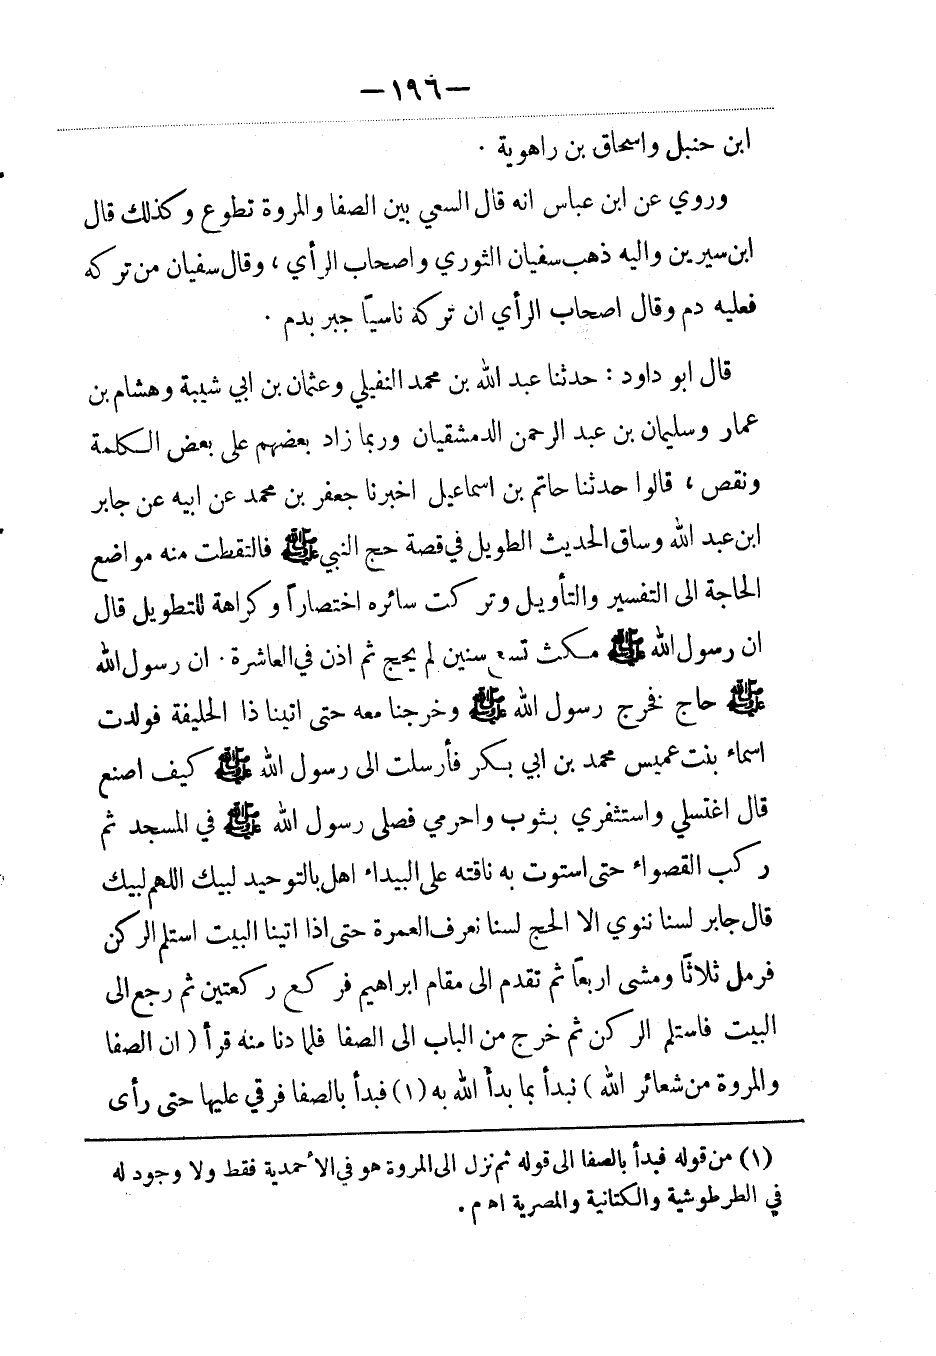 —١٩٦—
ابن حنبل واسحاق بن راهوية .
وروي عن ابن عباس انه قال السعي بين الصفا والمروة تطوع وكذلك قال
ابن سيرين واليه ذهب سفيان الثوري واصحاب الرأي ، وقال سفيان من تركه
فعليه دم وقال اصحاب الرأي ان تركه ناسياً جبر بدم .
قال ابو داود : حدثنا عبد الله بن محمد النفيلي وعثمان بن ابي شيبة وهشام بن
عمار وسليمان بن عبد الرحمن الدمشقيان وربما زاد بعضهم على بعض الكلمة
ونقص ، قالوا حدثنا حاتم بن اسماعيل اخبرنا جعفر بن محمد عن ابيه عن جابر
ابن عبد الله وساق الحديث الطويل في قصة حج النبي ﷺ فالتقطت منه مواضع
الحاجة الى التفسير والتأويل وتركت سائره اختصاراً وكراهة للتطويل قال
ان رسول الله ﷺ مكث تسع سنين لم يحج ثم اذن في العاشرة . ان رسول الله
ﷺ حاج فخرج رسول الله ﷺ وخرجنا معه حتى اتينا ذا الحليفة فولدت
اسماء بنت عميس محمد بن ابي بكر فأرسلت الى رسول الله ﷺ كيف اصنع
قال اغتسلي واستثفري بثوب واحرمي فصلى رسول الله ﷺ في المسجد ثم
ركب القصواء حتى استوت به ناقته على البيداء اهل بالتوحيد لبيك اللهم لبيك
قال جابر لسنا ننوي الا الحج لسنا نعرف العمرة حتى اذا اتينا البيت استلم الركن
فرمل ثلاثاً ومشى اربعاً ثم تقدم الى مقام ابراهيم فركع ركعتين ثم رجع الى
البيت فاستلم الركن ثم خرج من الباب الى الصفا فلما دنا منه قرأ ( ان الصفا
والمروة من شعائر الله ) نبدأ بما بدأ الله به (١) فبدأ بالصفا فرقي عليها حتى رأى
(١) من قوله فبدأ بالصفا الى قوله ثم نزل الى المروة هو في الأحمدية فقط ولا وجود له
في الطرطوشية والكتانية والمصرية اه م .